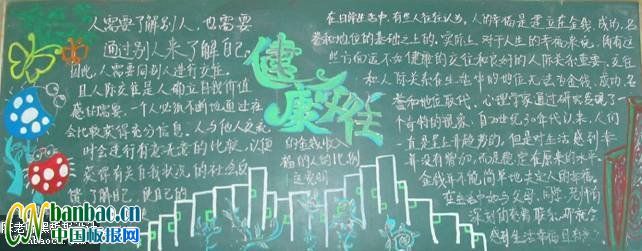 人需要了解别人,也需要
通过别人来了解自己。
因此,人需要同别人进行交往。
且人际交往是人确立自我价值
感的需要。一个人必须不断地通过社
会比较获得充分信息。人与他人交
时会进行有意无意的比较,以便
获得有关自我状况的社会反
馈,了解自己
健康交往
的金钱收入
福的人的比例
在日常生活中,有些人往往认为,人的幸福是建立在金钱、成功、名
誉和地位的基础之上的。实际上,对于人生的幸福来说,所有这
些方面远不如健康的交往和良好的人际关系重要。交往
和人际关系在生活中的地位无法为金钱、成功、名
誉和地位取代。心理学家通过研究发现了一
个奇特的现象,自20世纪30年代以来,人们
一直呈上升趋势的。但是对生活感到幸
并没有增加,而是稳定在原来的水平
金钱并不能简单地决定人的幸福。
在生活中如与父母、同学、老师有
深刻的
感到生活幸福
banbao.cn
中国板报网